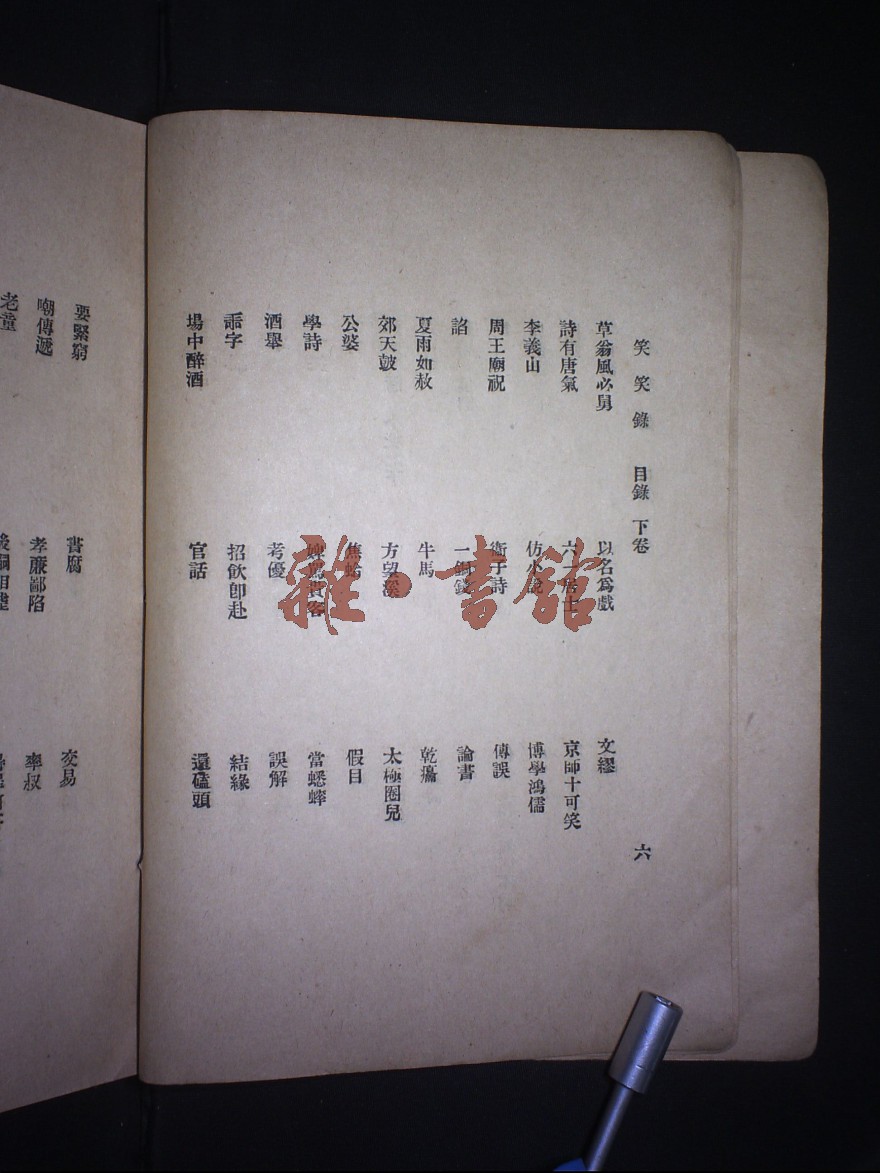 笑笑錄 目錄 下卷 六
草翁風必舅 以名爲戲 文繆
詩有唐氣 六一居士 京師十可笑
李義山 仿小說 博學鴻儒
周王廟祝 衛子詩 傳誤
諂 一銅錢 論書
夏雨如赦 牛馬 乾癟
郊天皷 方望溪 太極圈兒
公婆 蕉蛤 假目
學詩 婢罵貴客 當蟋蟀
酒舉 考優 誤解
乖字 招飲卽赴 結緣
場中醉酒 官話 還磕頭
要緊窮 書腐 交易
嘲傳遞 孝廉鄙陷 率叔
老童
雜·書館